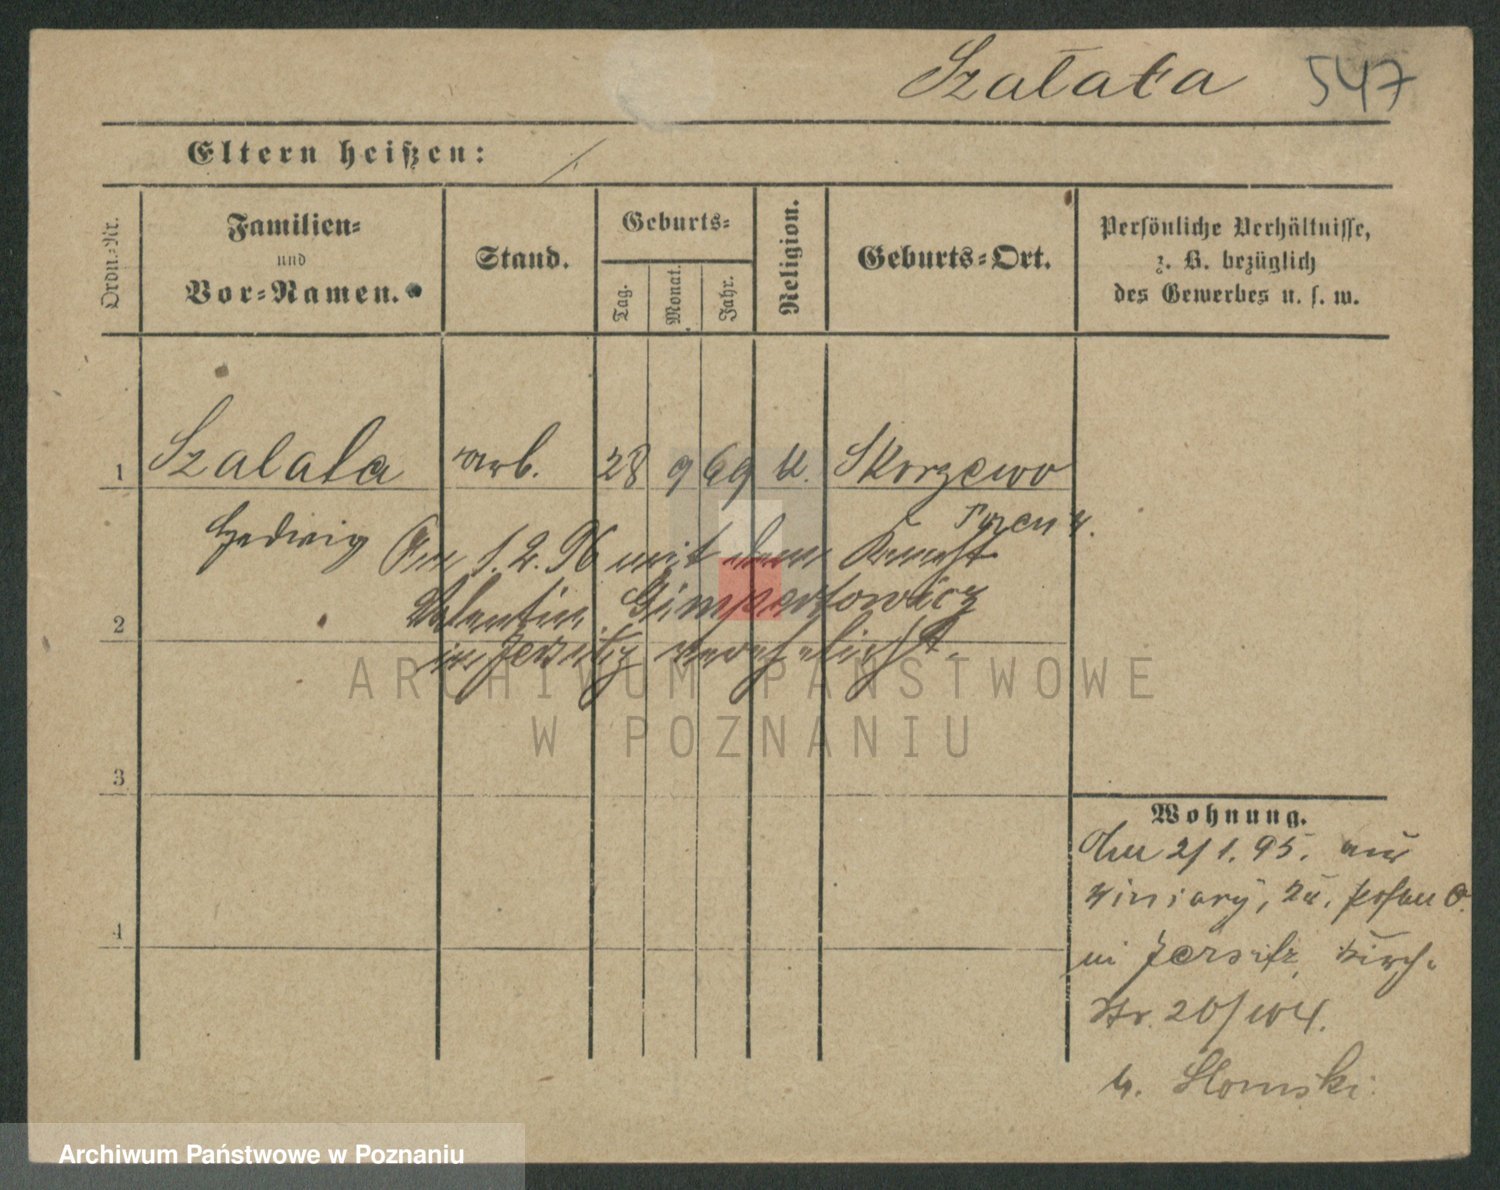 Szałata 547
Eltern heißen: /
Ordn.-Nr.
Familien-
und
Vor-Namen.
Stand.
Geburts-
Tag.
Monat.
Jahr.
Religion.
Geburts-Ort.
Persönliche Verhältnisse,
z. B. bezüglich
des Gewerbes u. s. w.
1 Szalata arb. 28 9 69 k. Skorzewo
Hedwig
Am 1. 2. 96 mit dem Knecht
2 Valentin
in Jersitz verehelicht.
3
4
Wohnung.
Am 2/1. 95. aus
Winiary, Kr. Posen O.
in Jersitz, Kirch-
Str. 20/104.
b. Slomski.
ARCHIWUM PAŃSTWOWE
W POZNANIU
Archiwum Państwowe w Poznaniu